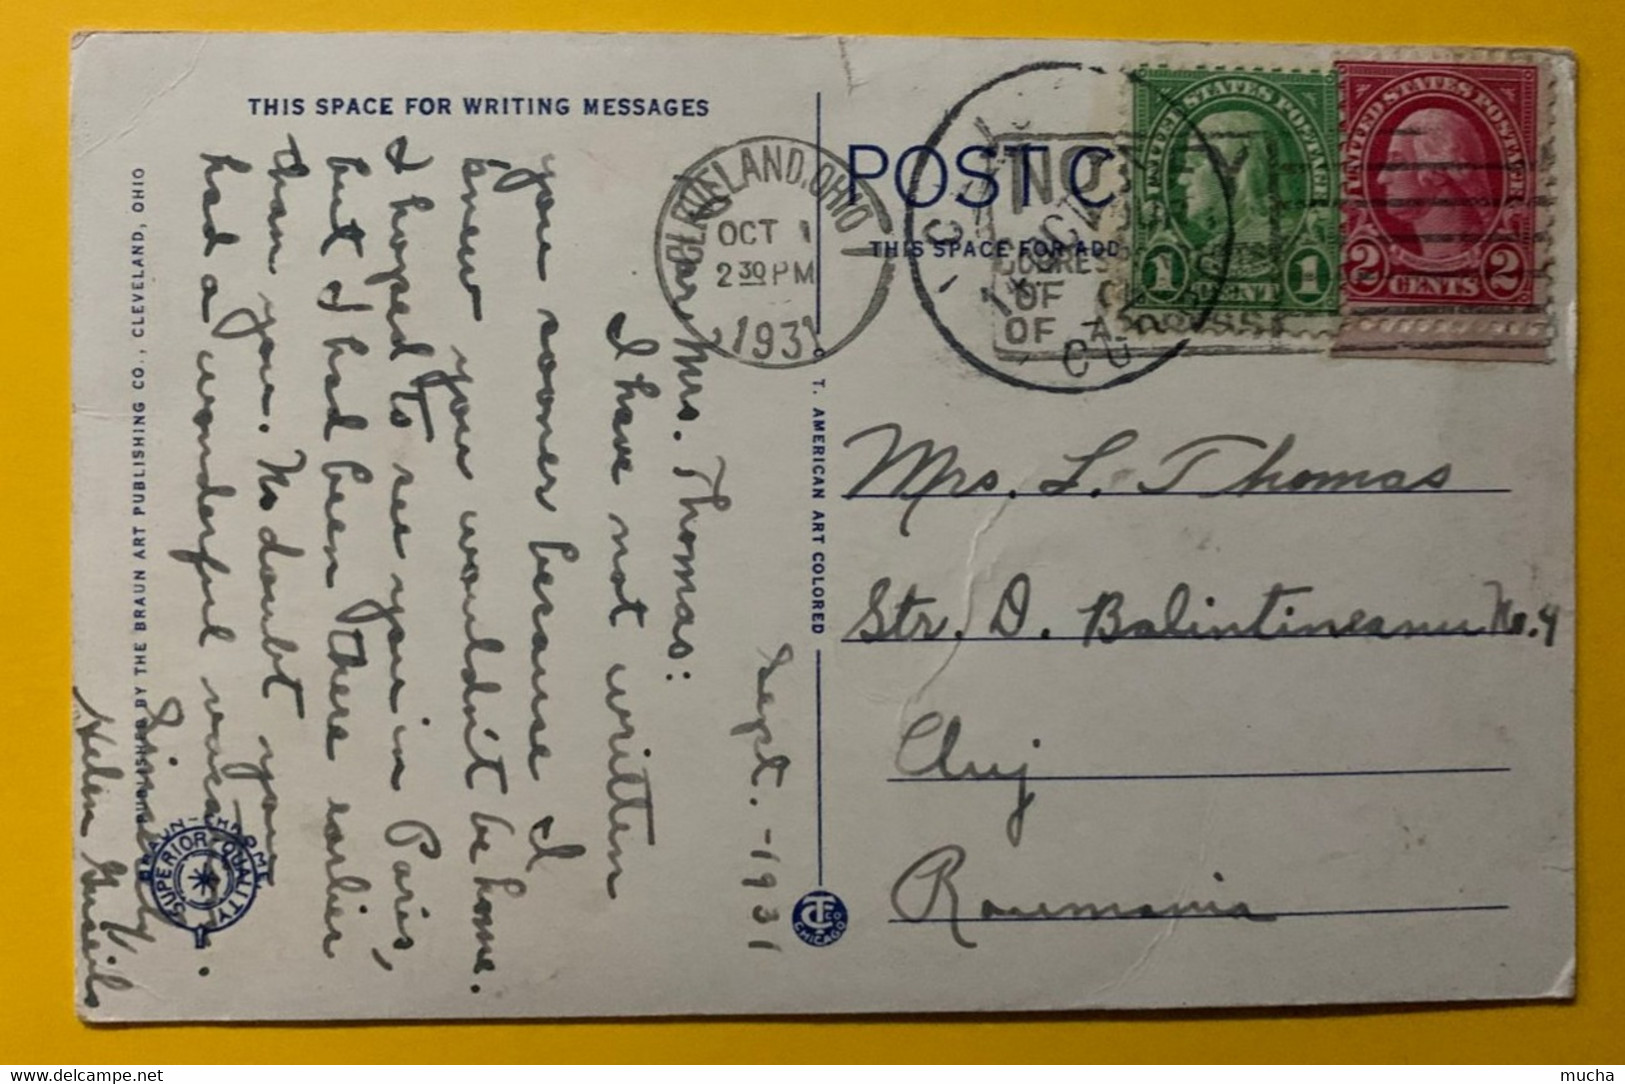 THIS SPACE FOR WRITING MESSAGES
Sept. - 1931
Dear Mrs. Thomas:
I have not written
you sooner because I
knew you wouldn't be home.
I hoped to see you in Paris,
but I had been there earlier
than you. No doubt you
had a wonderful vacation.
Sincerely,
Helen
PUBLISHED BY THE BRAUN ART PUBLISHING CO., CLEVELAND, OHIO
BRAUN-CHROME
SUPERIOR QUALITY
C. T. AMERICAN ART COLORED
CHICAGO
CLEVELAND, OHIO
OCT 1
2 30 PM
1931
POST C
THIS SPACE FOR ADD
NOTIFY
CORRES
OF
OF ADDRESS
CLUJ
UNITED STATES POSTAGE
1 CENT 1
UNITED STATES POSTAGE
2 CENTS 2
Mrs. L. Thomas
Str. D. Balintineanu No. 4
Cluj
Roumania
mucha